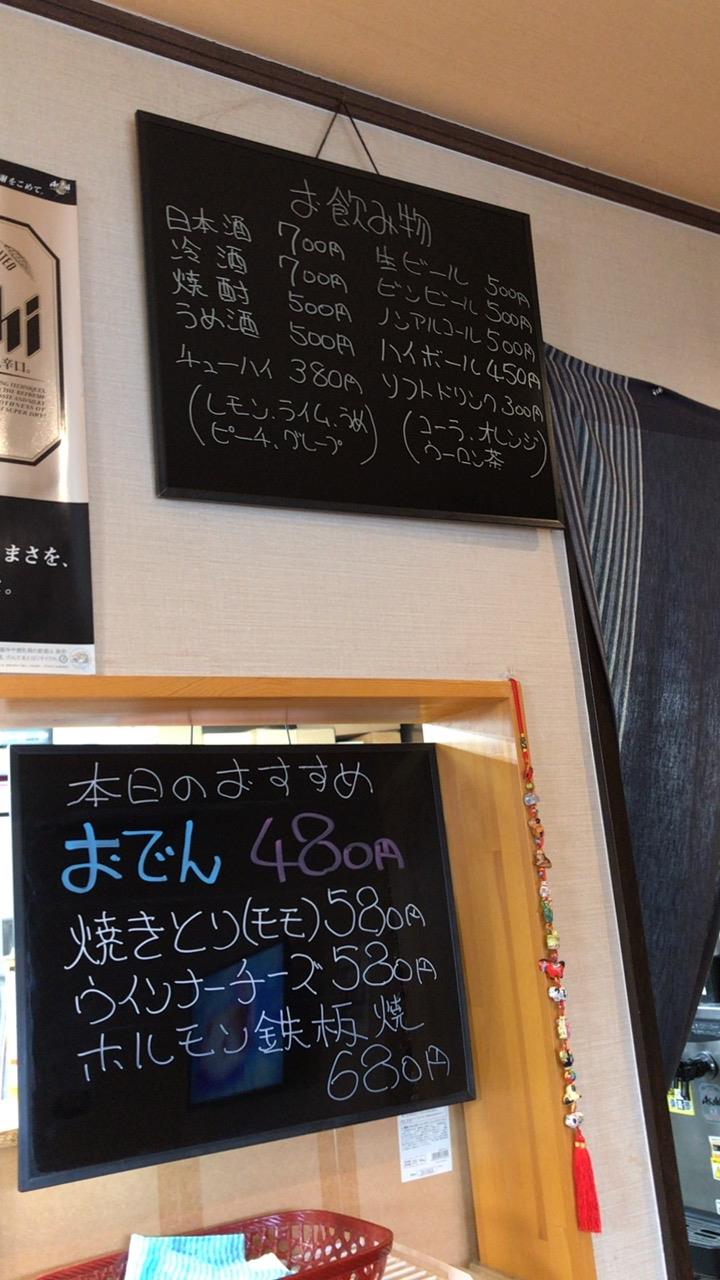 お飲み物
日本酒 700円
冷酒 700円
焼酎 500円
うめ酒 500円
チューハイ 380円
(レモン、ライム、うめ
ピーチ、グレープ)
生ビール 500円
ビンビール 500円
ノンアルコール 500円
ハイボール 450円
ソフトドリンク 300円
(コーラ、オレンジ
ウーロン茶)
をこめて。
hi
辛口。
まさを、
本日のおすすめ
おでん 480円
焼きとり(モモ) 580円
ウインナーチーズ 580円
ホルモン鉄板焼
680円